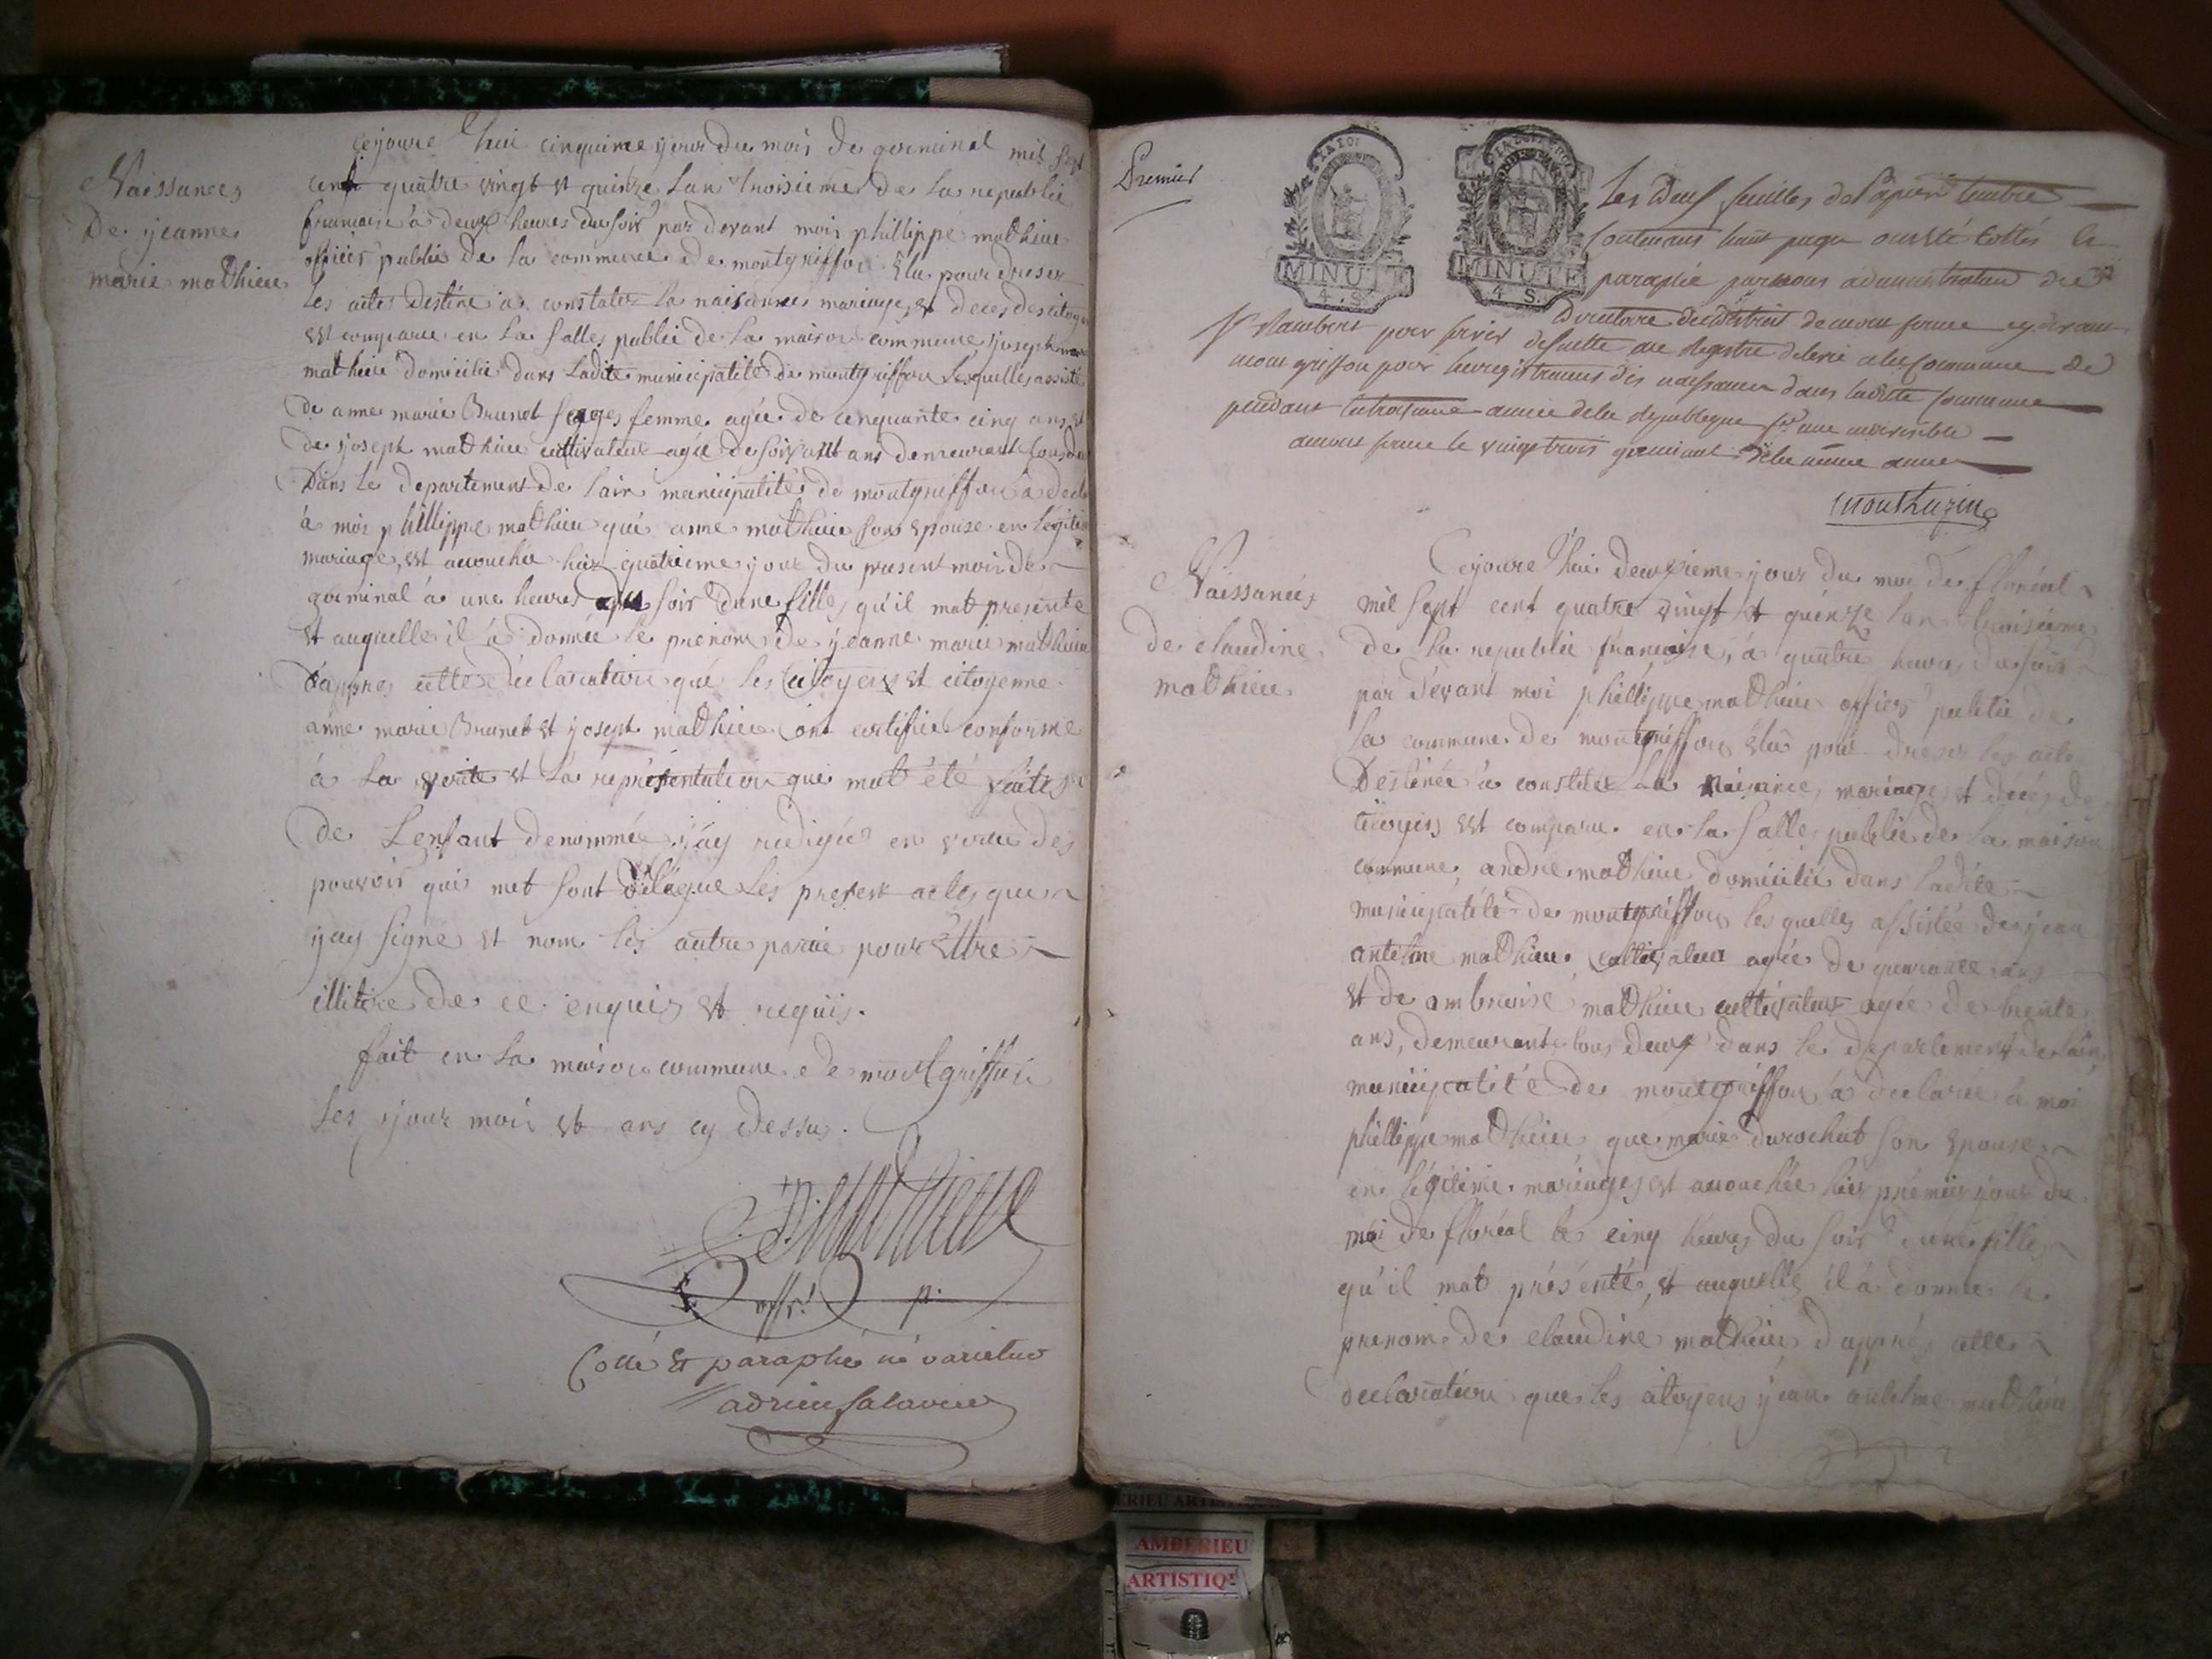 Naissances
De yeanne
marie mathieu
cejoure hui cinquime yours du mois de germinal mil sept
cent quatre vingt et quinze lan troisieme de la republic
francaise à deux heures du soir par devant moi phillippe mathieu
officier public de la commune de montgriffon élu pour dreser
les acte destiné a constater la naisance mariage et deces des citoye
est comparu en la salles public de la maison commune yjoseph marie
mathieu domicilié dans ladite municipalité de montgriffon lesquelles assisté
de anne marie Brunet sages femme agée de cinquante cinq ans et
de yjoseph mathieu cultivateur agée de soixant ans demeurant tous de
Dans le departement de lain municipalité de montgriffon a decl
à moi phillippe mathieu que anne mathieu sons epouse en legiti
mariage, est acouchée hier quatrieme yjour du present mois de
germinal à une heures du soir d'une filles qu'il mat presenté
et auquelle il à donnée le prenom de yeanne marie mathieu
d'appres cette declaration que les citoyens et citoyenne
anne marie Brunet et yosept mathieu ont certifié conforme
à la verite et la représentation qui mat été faites
de Lenfant denommée yay redigée en vertu des
pouvoir qui met sont délégué les present actes que
yay signé et nom les autre partie pour êttre
illitire de ce enquis et requis.
fait en la maison commune de montgriffon
les yjour mois et ans cy dessus.
P. Mathieu
offr. p.
Coté et paraphé né varietur
adrien Salavin
Premier
LA LOI
MINUTE
4. S.
MINUTE
4 S.
Les deux feuilles de Papier timbré
Contenans huit pages ont été cottés et
paraphé par nous administrateur du
Directoire du District de mont ferme cy devant
St Rambert pour servir desuitte au registre delivré a la Commune de
mont griffon pour lenregistrement des naissances dans ladite Commune
pendant la troisieme année de la Republique fse une indivisible
amont ferme le vingt trois germinal de la même année
Monthuzin
Naissancés
de claudine
mathieu
Cejoure hui deuxieme yjour du moi de floréal
mil sept cent quatre vingt et quinze lan troisiéme
de la republic française, à quatre heures du soir
par dévant moi phéllippe mathieu officier public de
la commune de montgriffon élu pour dreser les actes
Destinée à constater la naisance, mariage et decés de
citoyens est comparu en la salle public de la maison
commune, andre mathieu domicilié dans ladite
municipalité de montgriffon les quelles assistée de yean
antelme mathieu cultivateur agée de quarante ans
et de ambroise mathieu cultivateur agée de trente
ans, demeurant tous deux dans le departement de lain,
municipalité de montgriffon à declarée à moi
phillippe mathieu que marie durochat son epouse
en légitime mariages est acouchée hier prémier yjour du
moi de floréal le cinq heures du soir d'une filles
qu'il mat présenté, et auquelle il à donné le
prenom de claudine mathieu d'appres cette
declaration que les citoyens yean antelme mathieu
AMBERIEU
ARTISTIQUE